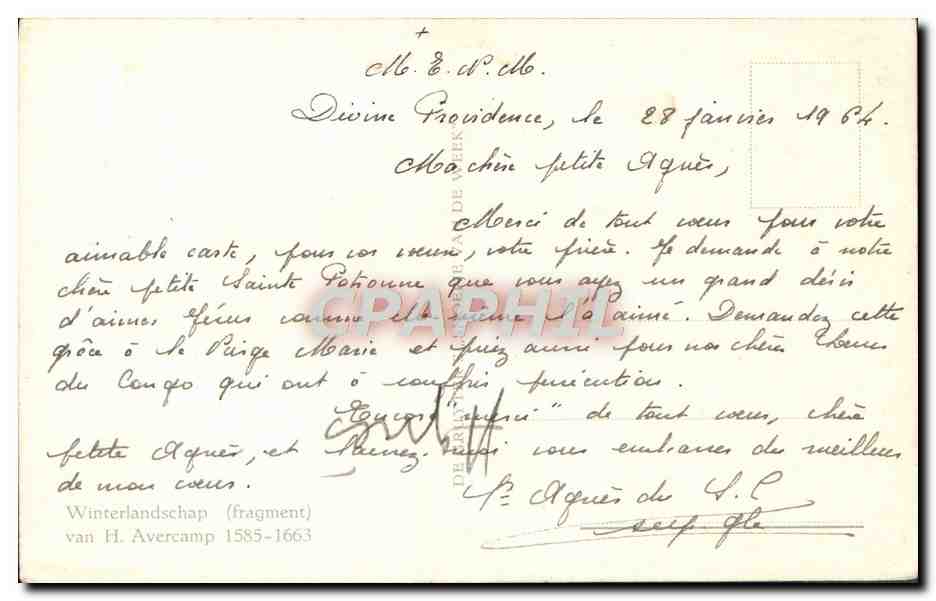 +
M. E. N. M.
Divine Providence, le 28 janvier 1964.
Ma chère petite Agnès,
Merci de tout cœur pour votre
aimable carte, pour vos vœux, votre prière. Je demande à notre
chère petite Sainte Patronne que vous ayez un grand désir
d'aimer Jésus comme elle-même l'a aimé. Demandez cette
grâce à la Vierge Marie et priez aussi pour nos chères Sœurs
du Congo qui ont à souffrir persécution.
Encore "merci" de tout cœur, chère
petite Agnès, et laissez-moi vous embrasser du meilleur
de mon cœur.
Sr Agnès du S. C
sup. gle
Winterlandschap (fragment)
van H. Avercamp 1585-1663
CPAPHIL